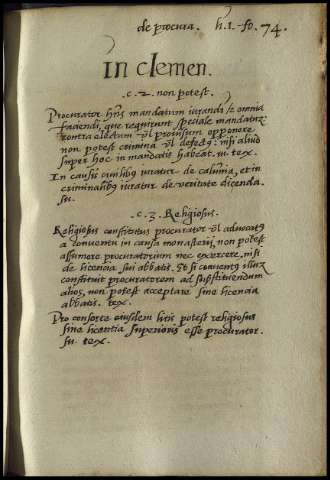 de procura. li. 1. fo. 74.
In clemen.
.c. 2. non potest.
Procurator hñs mandatum iurandi, & omnia
faciendi, que requirunt speciale mandatũ
contra electum vĺ prouisum opponere
non potest crimina vĺ defectꝰ: nisi aliud
super hoc in mandatis habeat. ut. tex.
In causis ciuilibus iuratur de calũnia, et in
criminalibus iuratur de veritate dicenda.
.c. 3. Religiosus.
Religiosus constitutus procurator vĺ aduocatꝰ
a conuentu in causa monasterij, non potest
assumere procuratorium nec exercere, nisi
de licencia sui abbatis. Et si conuentꝰ illum
constituit procuratorem ad substituendum
alios, non potest acceptare sine licencia
abbatis. tex.
Pro consorte eiusdem litis potest religiosus
sine licentia superioris esse procurator.
tex.